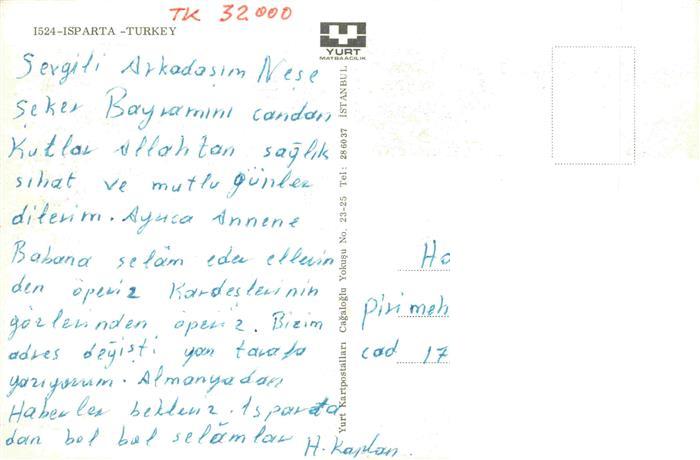 TK 32.000
I524-ISPARTA -TURKEY
YURT
MATBAACILIK
Sevgili Arkadaşım Neşe
Şeker Bayramını candan
Kutlar Allahtan sağlık
sihat ve mutlu günler
dilerim. Ayrıca Annene
Babana selâm eder ellerin
den öperiz Kardeşlerinin
gözlerinden öperiz. Bizim
adres değişti yan tarafa
yazıyorum. Almanyadan
Haberler bekleriz. Isparta
dan bol bol selâmlar
H. Kaplan.
Yurt Kartpostalları Cağaloğlu Yokuşu No. 23-25 Tel: 286037 İSTANBUL
Ho
pirimeh
cad 17